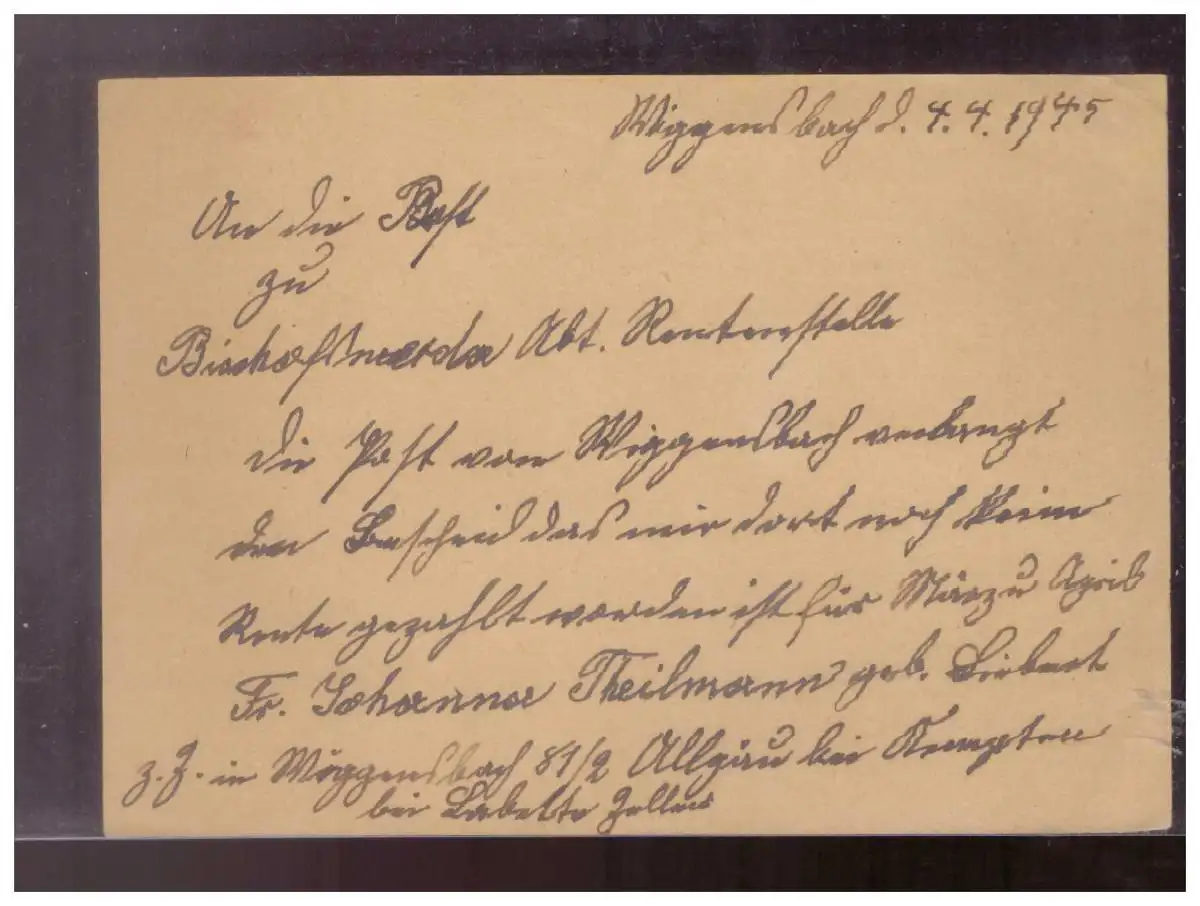 Wiggensbach d. 4.4.1945
An die Post
zu
Bischofswerda Abt. Rentenstelle
Die Post von Wiggensbach verlangt
den Bescheid das mir dort noch keine
Rente gezahlt worden ist für März u April
Fr. Johanna Theilmann geb. Liebert
z. Z. in Wiggensbach 81/2 Allgäu bei Kempten
bei